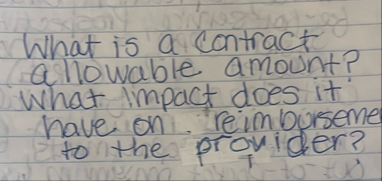 What is a contract
allowable amount?
What impact does it
have on reimburseme
to the provider?